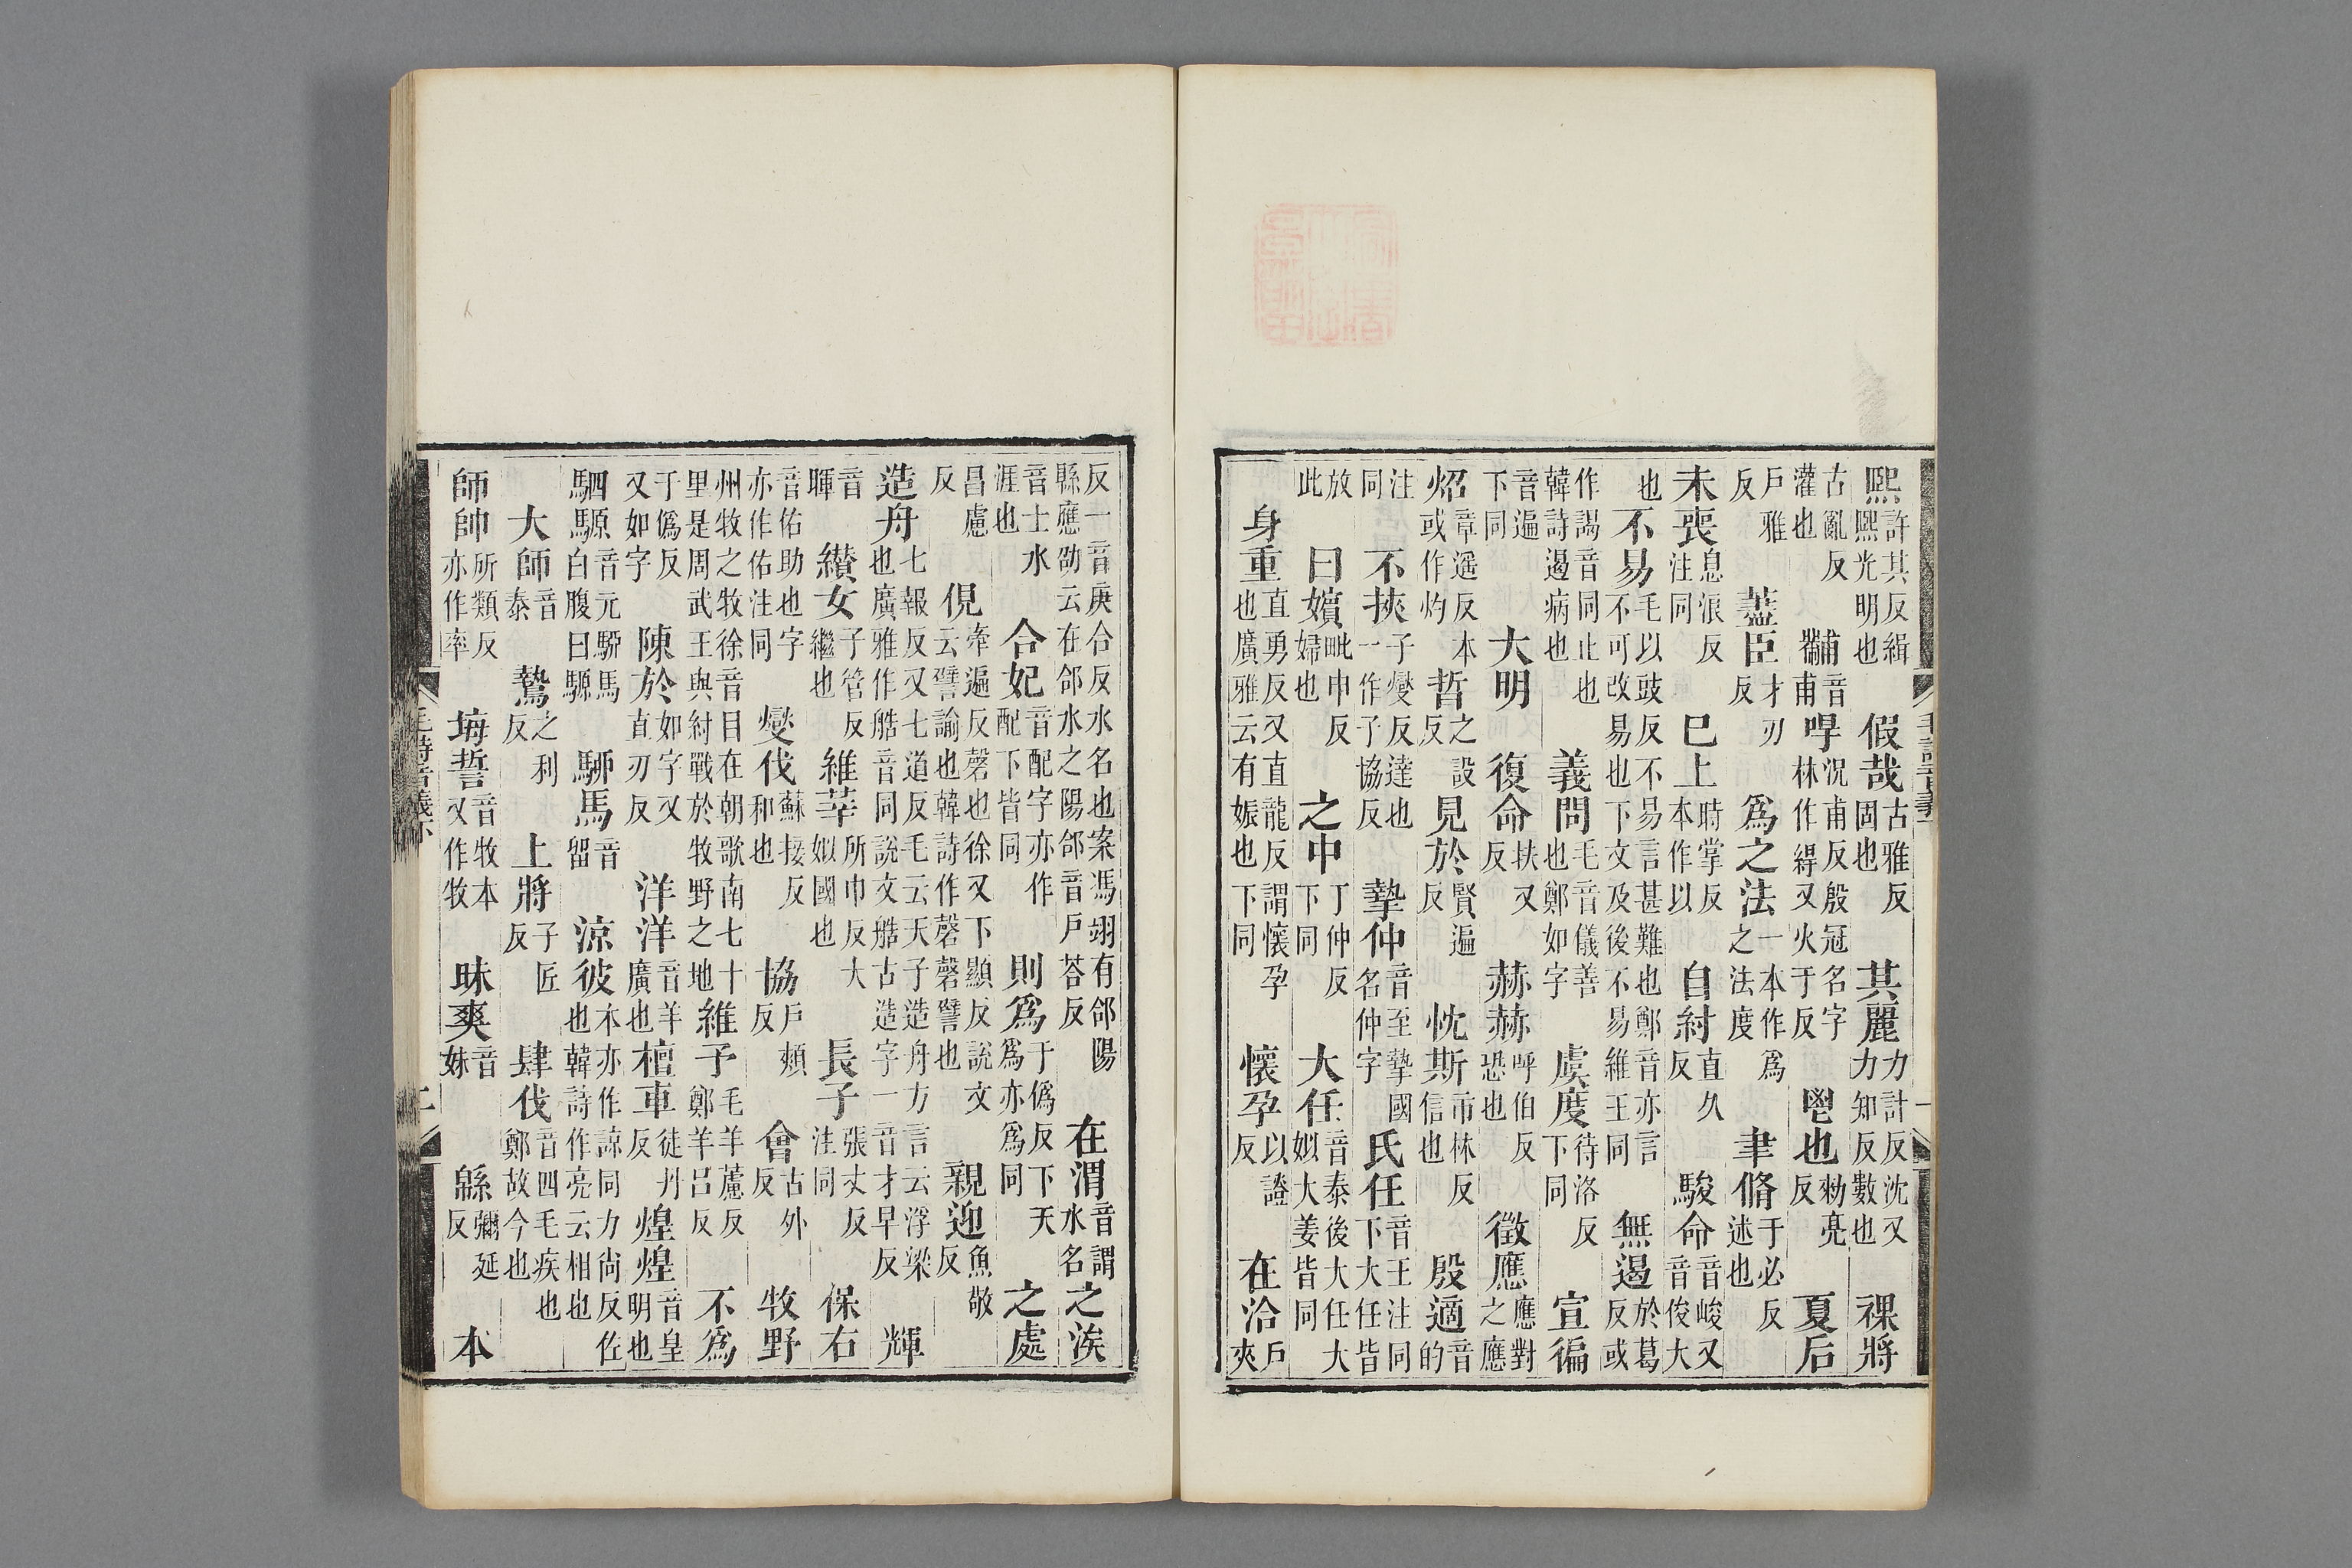 熙許其反緝熙光明也假哉古雅反固也其麗力計反沈又力知反數也祼將
古亂反灌也黼音甫冔況甫反殷冠名字林作縪又火于反鬯也勑亮反夏后
戶雅反藎臣才刃反爲之法一本作爲之法度聿脩于必反述也
未喪息浪反注同巳上時掌反本作以自紂直久反駿命音峻又音俊大
也不易毛以豉反不易言甚難也鄭音亦言不可改易也下文及後不易維王同無遏於葛反或
作謁音同止也韓詩遏病也義問毛音儀善也鄭如字虞度待洛反下同宣徧
音遍下同大明復命扶又反赫赫呼伯反恐也徵應應對之應
炤章遥反本或作灼哲之設反見於賢遍反忱斯市林反信也殷適音的
注同不挾子燮反達也一作子協反摯仲音至摯國名仲字氏任音王注同下大任皆
放此曰嬪毗申反婦也之中丁仲反下同大任音泰後大任大姒大姜皆同
身重直勇反又直龍反謂懷孕也廣雅云有娠也下同懷孕以證反在洽戶夾
反一音庚合反水名也案馮翊有郃陽縣應劭云在郃水之陽郃音戶荅反在渭音謂水名之涘
音士水涯也合妃音配字亦作配下皆同則爲于僞反下天爲亦爲同之處
昌慮反俔牽遍反磬也徐又下顯反說文云譬諭也韓詩作磬磬譬也親迎魚敬反
造舟七報反又七道反毛云天子造舟方言云浮梁也廣雅作艁音同說文艁古造字一音才早反輝
音暉纘女子管反繼也維莘所巾反大姒國也長子張丈反注同保右
音佑助也字亦作佑注同燮伐蘇接反和也協戶頰反會古外反牧野
州牧之牧徐音目在朝歌南七十里是周武王與紂戰於牧野之地維予毛羊蔗反鄭羊呂反不爲
于僞反又如字陳於如字又直刃反洋洋音羊廣也檀車徒丹反煌煌音皇明也
駟騵音元駵馬白腹曰騵駵馬音留涼彼本亦作諒同力尚反佐也韓詩作亮云相也
大師音泰鷙之利反上將子匠反肆伐音四毛疾也鄭故今也
師帥所類反亦作率坶誓音牧本又作牧昧爽音妹緜彌延反本
毛詩音義下